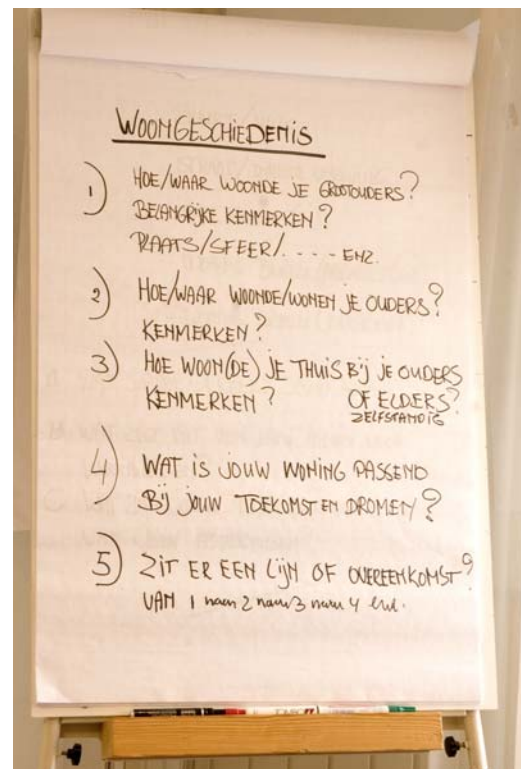 WOONGESCHIEDENIS
1) HOE/WAAR WOONDE JE GROOTOUDERS?
BELANGRIJKE KENMERKEN?
PLAATS/SFEER/..... ENZ.
2) HOE/WAAR WOONDE/WONEN JE OUDERS?
KENMERKEN?
3) HOE WOON(DE) JE THUIS BIJ JE OUDERS
KENMERKEN? OF ELDERS?
ZELFSTANDIG
4) WAT IS JOUW WONING PASSEND
BIJ JOUW TOEKOMST EN DROMEN?
5) ZIT ER EEN LIJN OF OVEREENKOMST?
VAN 1 naar 2 naar 3 naar 4 enz.